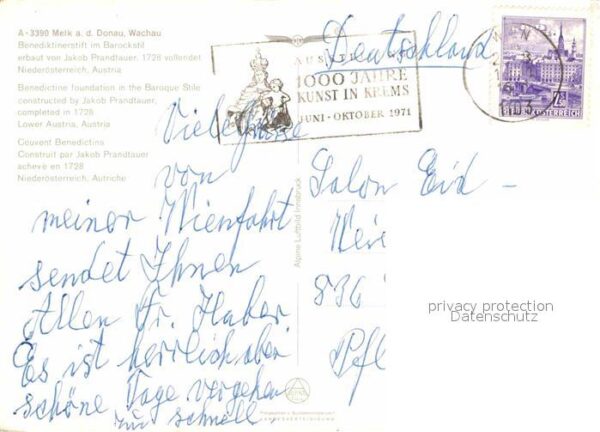 A-3390 Melk a. d. Donau, Wachau
Benediktinerstift im Barockstil
erbaut von Jakob Prandtauer, 1728 vollendet
Niederösterreich, Austria
Benedictine foundation in the Baroque Stile
constructed by Jakob Prandtauer,
completed in 1728
Lower Austria, Austria
Couvent Benedictins
Construit par Jakob Prandtauer
achevé en 1728
Niederösterreich, Autriche
1000 JAHRE
KUNST IN KREMS
JUNI - OKTOBER 1971
WIEN
1103
REPUBLIK ÖSTERREICH
Deutschland
Viele Grüsse
von
meiner Wienfahrt
sendet Ihnen
Allen Fr. Huber
Es ist herrlich aber
schöne Tage vergehen
zu schnell
Alpine Luftbild Innsbruck
Salon
836
privacy protection
Datenschutz